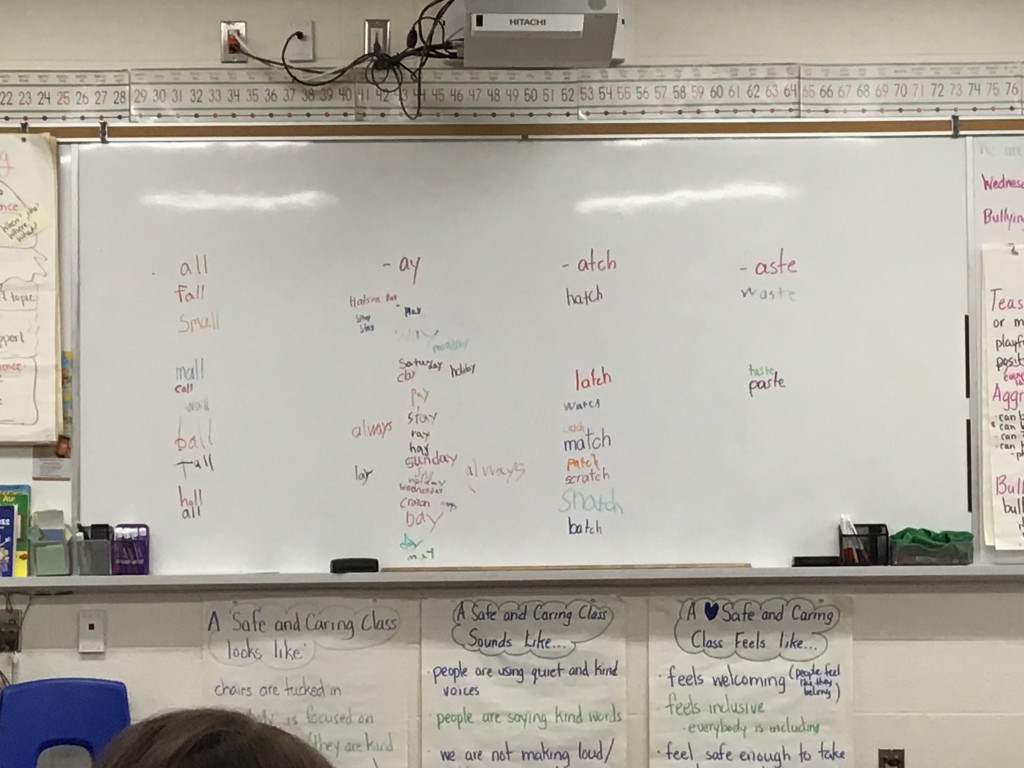 HITACHI
22 23 24 25 26 27 28 29 30 31 32 33 34 35 36 37 38 39 40 41 42 43 44 45 46 47 48 49 50 51 52 53 54 55 56 57 58 59 60 61 62 63 64 65 66 67 68 69 70 71 72 73 74 75 76
all
fall
Small
mall
call
wall
ball
Tall
hall
all
- ay
play
stay
way
monday
Saturday
holiday
pay
stay
always
ray
hay
sunday
lay
always
wednesday
crayon
bay
- atch
hatch
latch
match
patch
scratch
snatch
batch
- aste
waste
taste
paste
Wednes
Bullyin
Teas
or m
playf
posit
Aggr
can b
can
can
Bull
bull
A Safe and Caring Class
looks like
chairs are tucked in
is focused on
they are kind
A Safe and Caring Class
Sounds Like...
people are using quiet and kind
voices
people are saying kind words
we are not making loud/
A ♥ Safe and Caring
Class Feels like...
· feels welcoming (people feel
like they
belong)
feels inclusive
- everybody is including
· feel safe enough to take